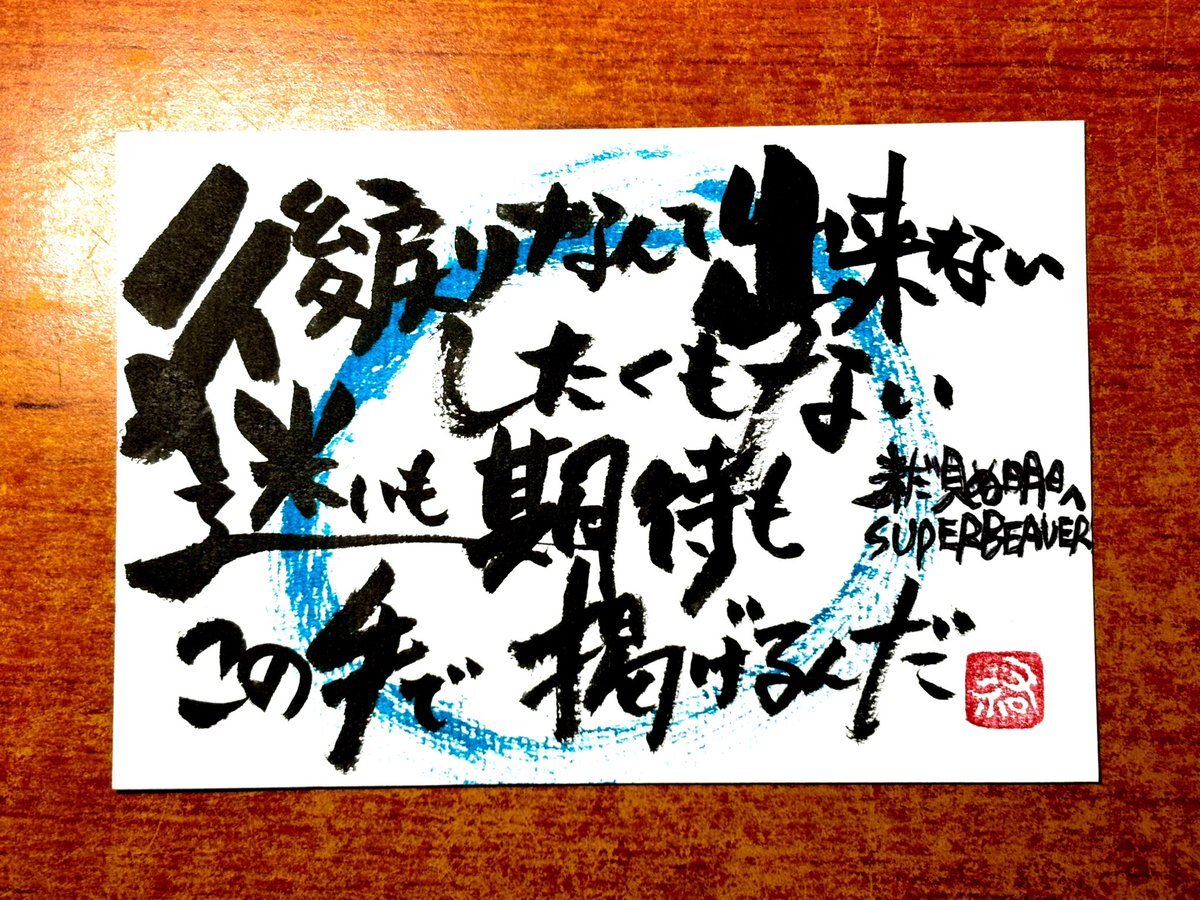 後戻りなんて出来ない
したくもない
迷いも期待も
この手で掲げるんだ
未だ見ぬ明日へ
SUPER BEAVER